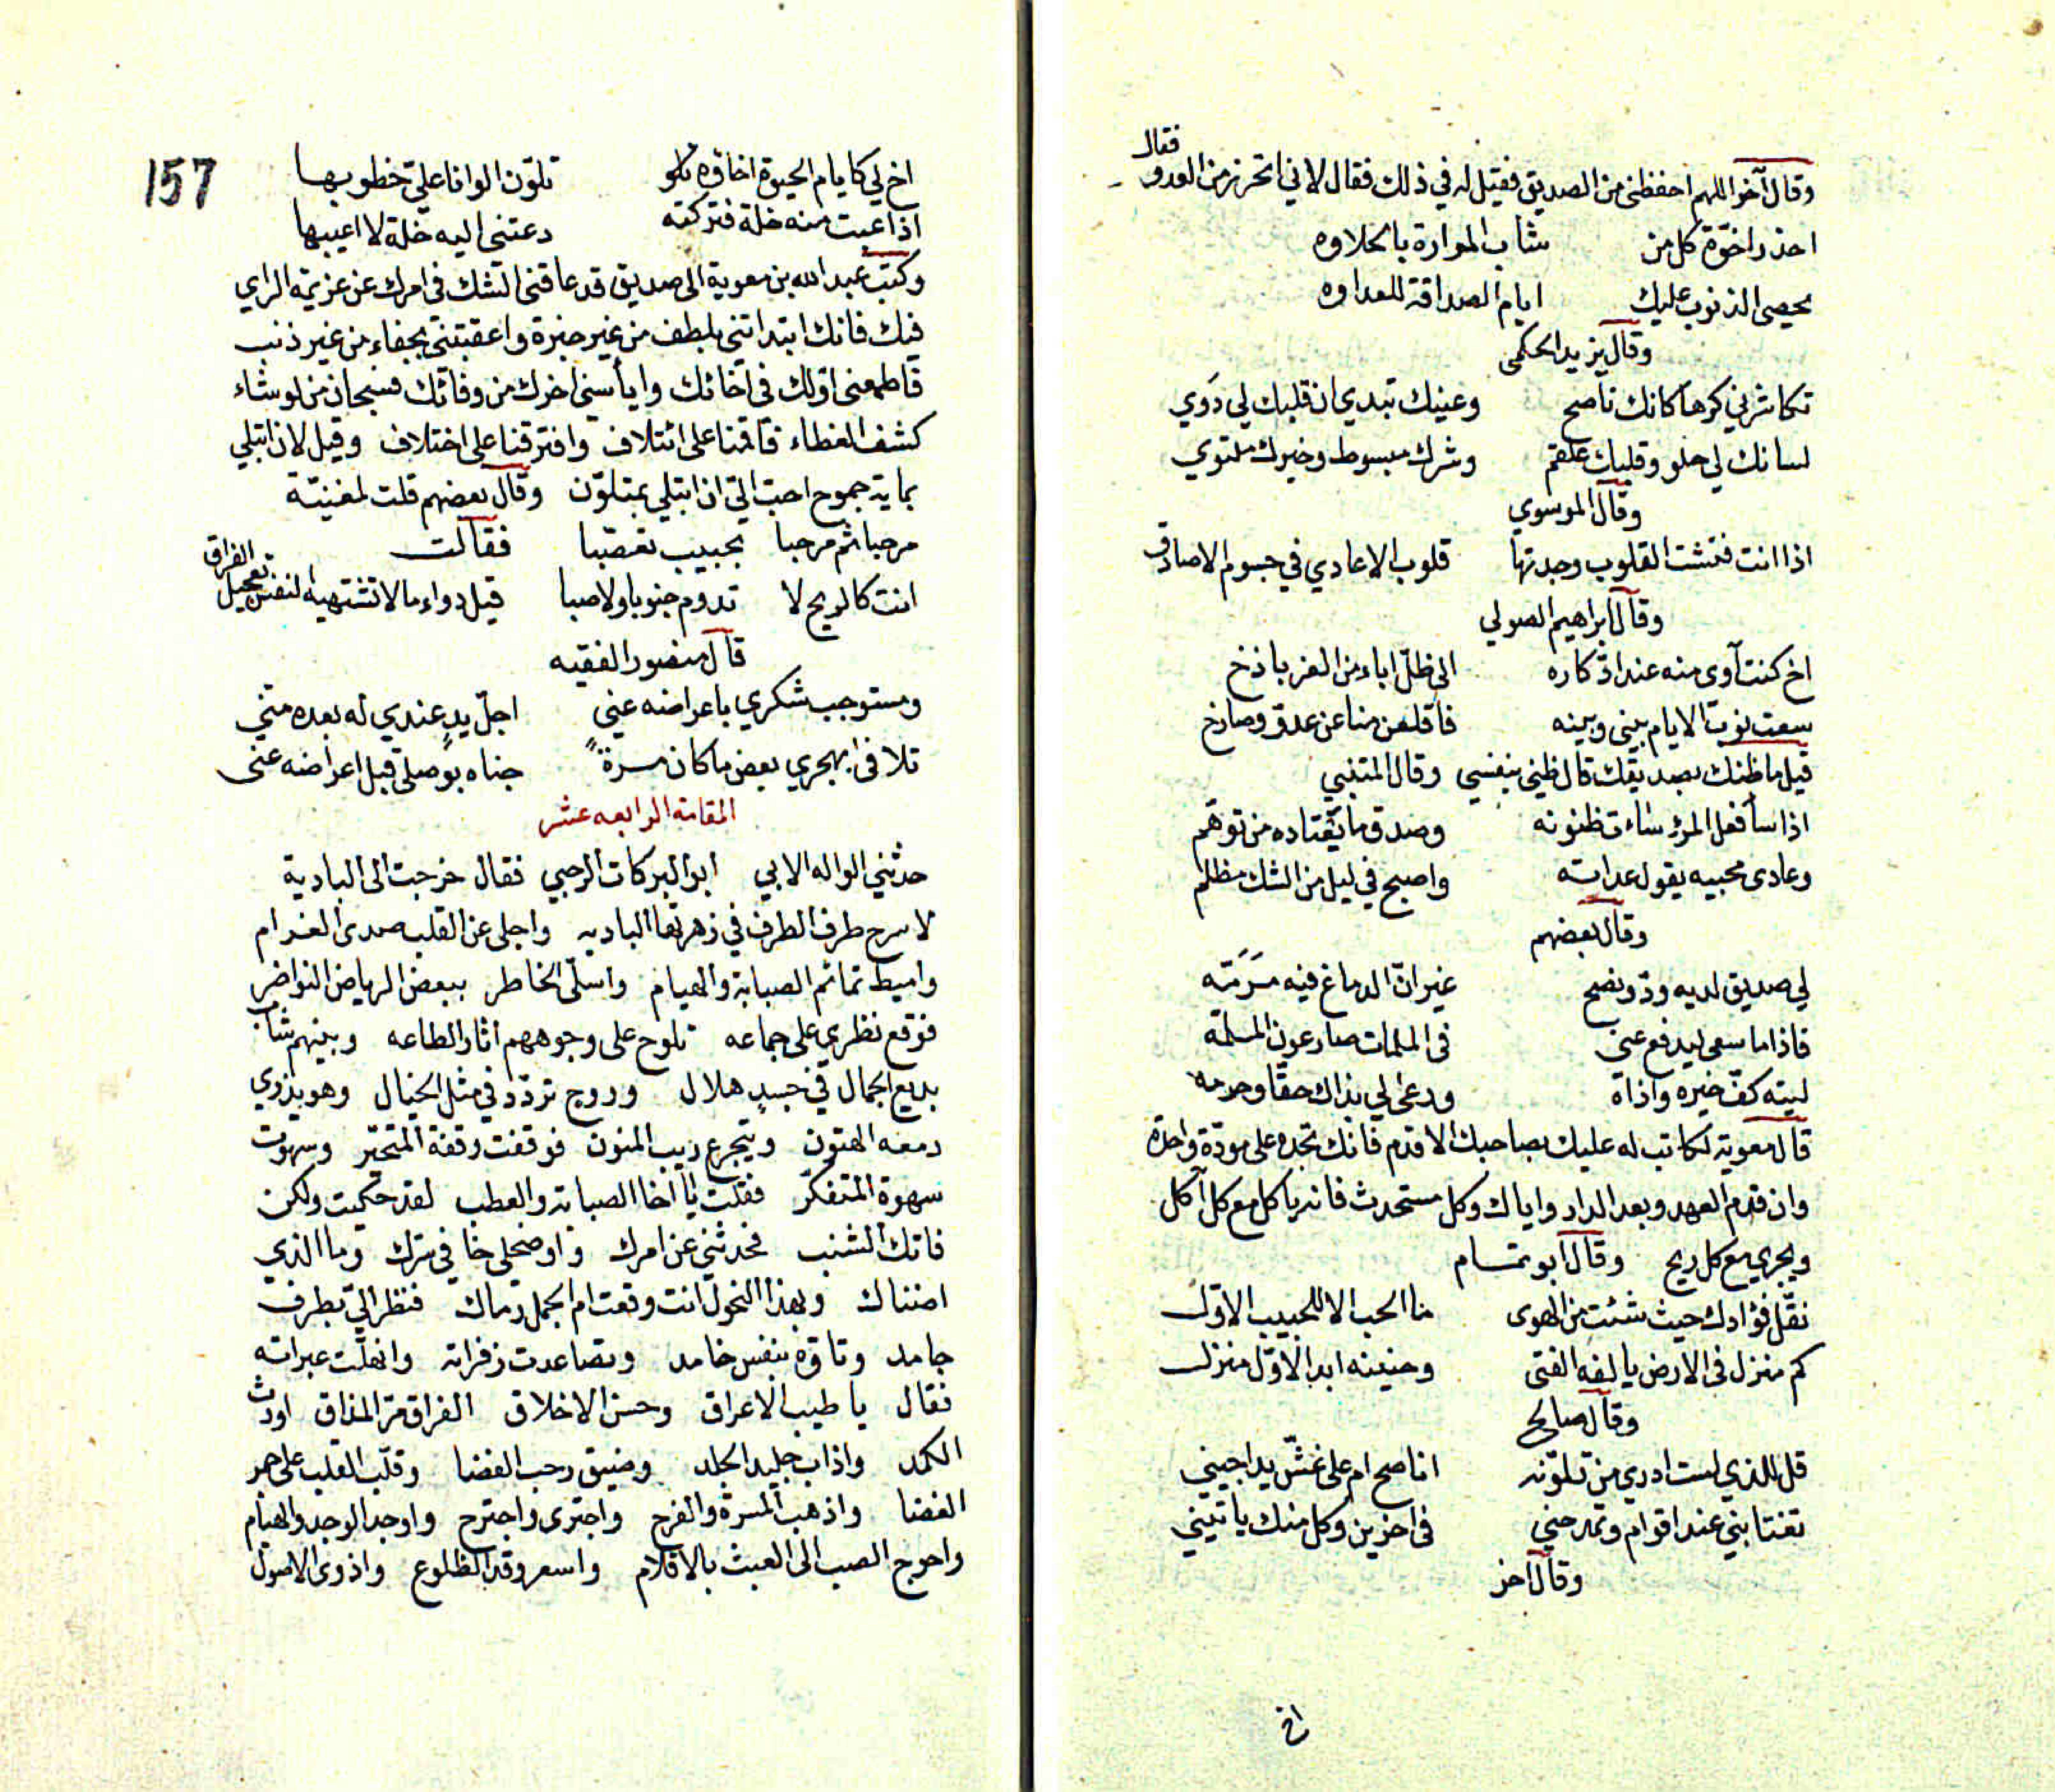 وقال آخر اللهم احفظني من الصديق فقيل له في ذلك فقال لاني اتحرز من العدو فقال
احذر اخوة كل من شاب المرارة بالحلاوه
يحصى الذنوب عليك ايام الصداقة للعداوه
وقال يزيد الحكمى
تكاشرني كرها كانك ناصح وعينك تبدي ان قلبك لي دَوي
لسانك لي حلو وقلبك علقم وشرك مبسوط وخيرك ملتوي
وقال الموسوي
اذا انت فتشت القلوب وجدتها قلوب الاعادي في جسوم الاصادق
وقال ابراهيم الصولي
اخ كنت آوى منه عند ادّكاره الى ظلّ اباء من العز باذخ
سعت نوب الايام بيني وبينه فاقلعن منا عن عدوّ وصارخ
قيل ما ظنك بصديقك قال ظني بنفسي وقال المتنبي
اذا سأ فعل المرؤ سأت ظنونه وصدق ما يعتاده من توهّم
وعادى محبيه بقول عداته واصبح في ليل من الشك مظلم
وقال بعضهم
لي صديق لديه ودّ ونصح غير انّ الدماغ فيه مَرَمّه
فاذا ما سعى ليدفع عني في الملمات صار عون الملمّه
ليته كفّ خيره واذاه ورعى لي بذاك حقّا وحرمه
قال معوية لكاتب له عليك بصاحبك الاقدم فانك تجده على مودّة واحدة
وان قدم العهد وبعد الدار واياك وكل مستحدث فانه ياكل مع كل آكل
ويجري مع كل ريح وقال ابو تمام
نقّل فؤادك حيث شئت من الهوى ما الحب الا للحبيب الاوّل
كم منزل في الارض يالفه الفتى وحنينه ابدا لاوّل منزل
وقال صالح
قل للذي لست ادري من تلوّنه اناصح ام على غشّ يداجيني
تغتابني عند اقوام وتمدحني في اخرين وكل منك ياتيني
وقال اخر
اخ
157
اخ لي كايام الحيوة اخاؤه تلوّن الوانا عليّ خطوبها
اذا عبت منه خلة فتركته دعتني اليه خلة لا اعيبها
وكتب عبد الله بن معوية الى صديق قد عاقني الشك في امرك عن عزيمة الراي
فيك فانك ابتداتني بلطف من غير خبرة واعقبتني بجفاء من غير ذنب
فاطمعني اوّلك في اخائك وايأسني اخرك من وفائك فسبحان من لو شاء
كشف الغطاء فاقمنا على ائتلاف وافترقنا على اختلاف وقيل لان ابتلي
بماية جموح احب اليّ ان ابتلي بمتلوّن وقال بعضهم قلت لمغنيّة
مرحبا ثم مرحبا بحبيب تعصّبا فقالت
انت كالريح لا تدوم جنوبا ولا صبا قيل دواء ما لا تشتهيه النفس تعجيل الفراق
قال منصور الفقيه
ومستوجب شكري باعراضه عني اجلّ يدٍ عندي له بعده منّي
تلافى بهجري بعض ما كان مرة جناه بوصلي قبل اعراضه عني
المقامة الرابعه عشر
حدثني الواله الابي ابو البركات الرحبي فقال خرجت الى البادية
لاسرح طرف الطرف في زهرتها الباديه واجلى عن القلب صدى الغرام
واميط تمائم الصبابة والهيام واسلّى الخاطر ببعض الرياض النواضر
فوقع نظري على جماعه تلوح على وجوههم اثار الطاعه وبينهم شاب
بديع الجمال في جسدٍ هلال وروح تردّد في مثل الخيال وهو يذري
دمعه الهتون ويتجرع ريب المنون فوقفت وقفة المتحيّر وسهوت
سهوة المتفكّر فقلت يا اخا الصبابة والعطب لقد حكيت ولكن
فاتك الشنب فحدثني عن امرك واوضح لي خافي سرك وما الذي
اضناك وبهذا النحول انت وقعت ام الجمل رماك فنظر اليّ بطرف
جامد وتاوّه بنفس خامد وتصاعدت زفراته وانهلّت عبراته
فقال يا طيب الاعراق وحسن الاخلاق الفراق مرّ المذاق اورث
الكمد واذاب جليد الجلد وضيق رحب الفضا وقلّب القلب على جمر
الغضا واذهب المسرة والفرح واجترى واجترح واوجد الوجد والهيام
واحوج الصب الى العبث بالاقلام واسعر وقد الظلوع واذوى الاصول